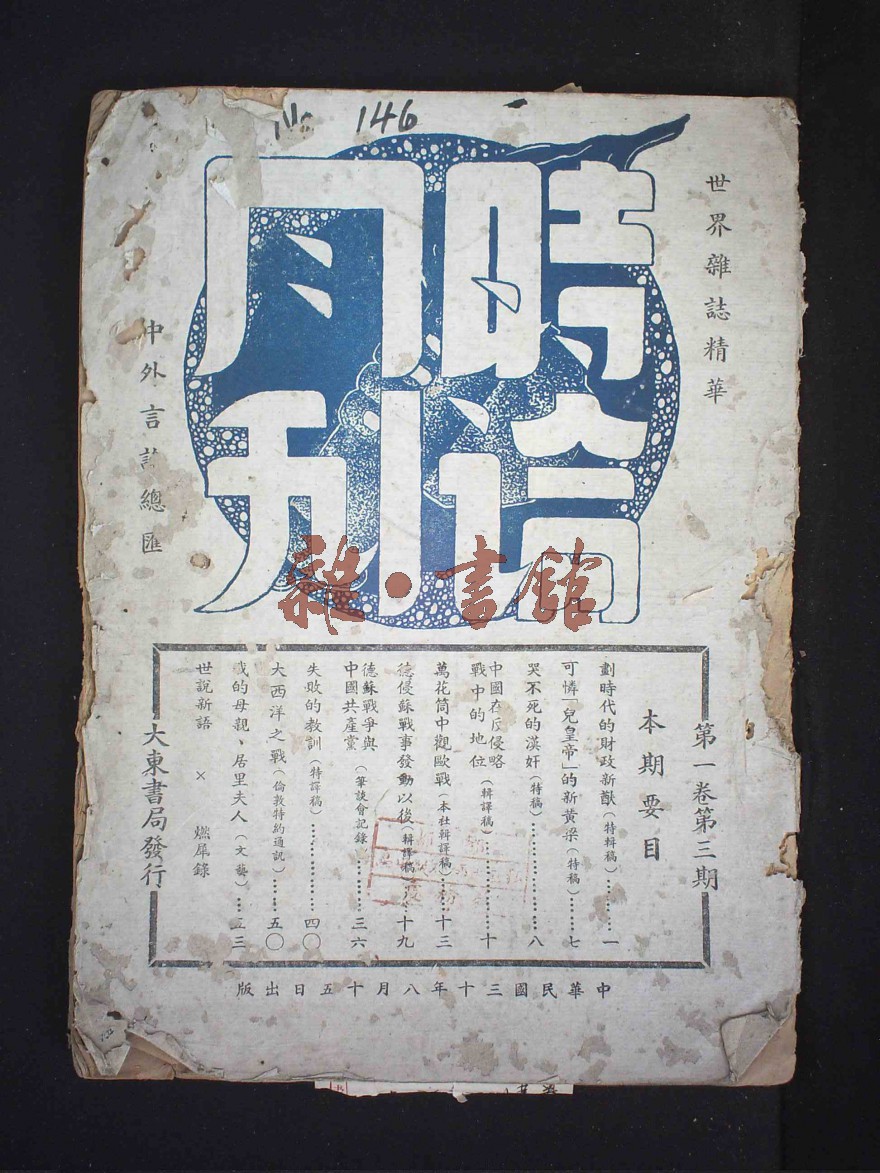 No 146
時論
月刊
世界雜誌精華
中外言論總匯
書館
第一卷第三期
本期要目
劃時代的財政新猷(特輯稿)………一
可憐「兒皇帝」的新黃梁(特稿)……七
哭不死的漢奸(特稿)……………八
中國在反侵略
戰中的地位(輯譯稿)……………十
萬花筒中觀歐戰(本社輯譯稿)……十三
德侵蘇戰事發動以後(輯譯稿)……十九
德蘇戰爭與
中國共產黨(筆談會記錄)…………三六
失敗的教訓(特譯稿)……………四〇
大西洋之戰(倫敦特約通訊)……五〇
我的母親、居里夫人(文藝)……五三
世說新語 × 燃犀錄
大東書局發行
中華民國三十年八月十五日出版